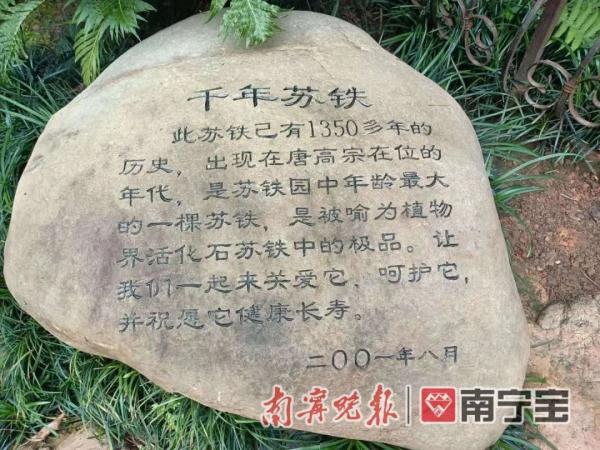 千年苏铁
此苏铁已有1350多年的
历史，出现在唐高宗在位的
年代，是苏铁园中年龄最大
的一棵苏铁，是被喻为植物
界活化石苏铁中的极品。让
我们一起来关爱它、呵护它，
并祝愿它健康长寿。
二〇〇一年八月
南宁晚报 南宁宝